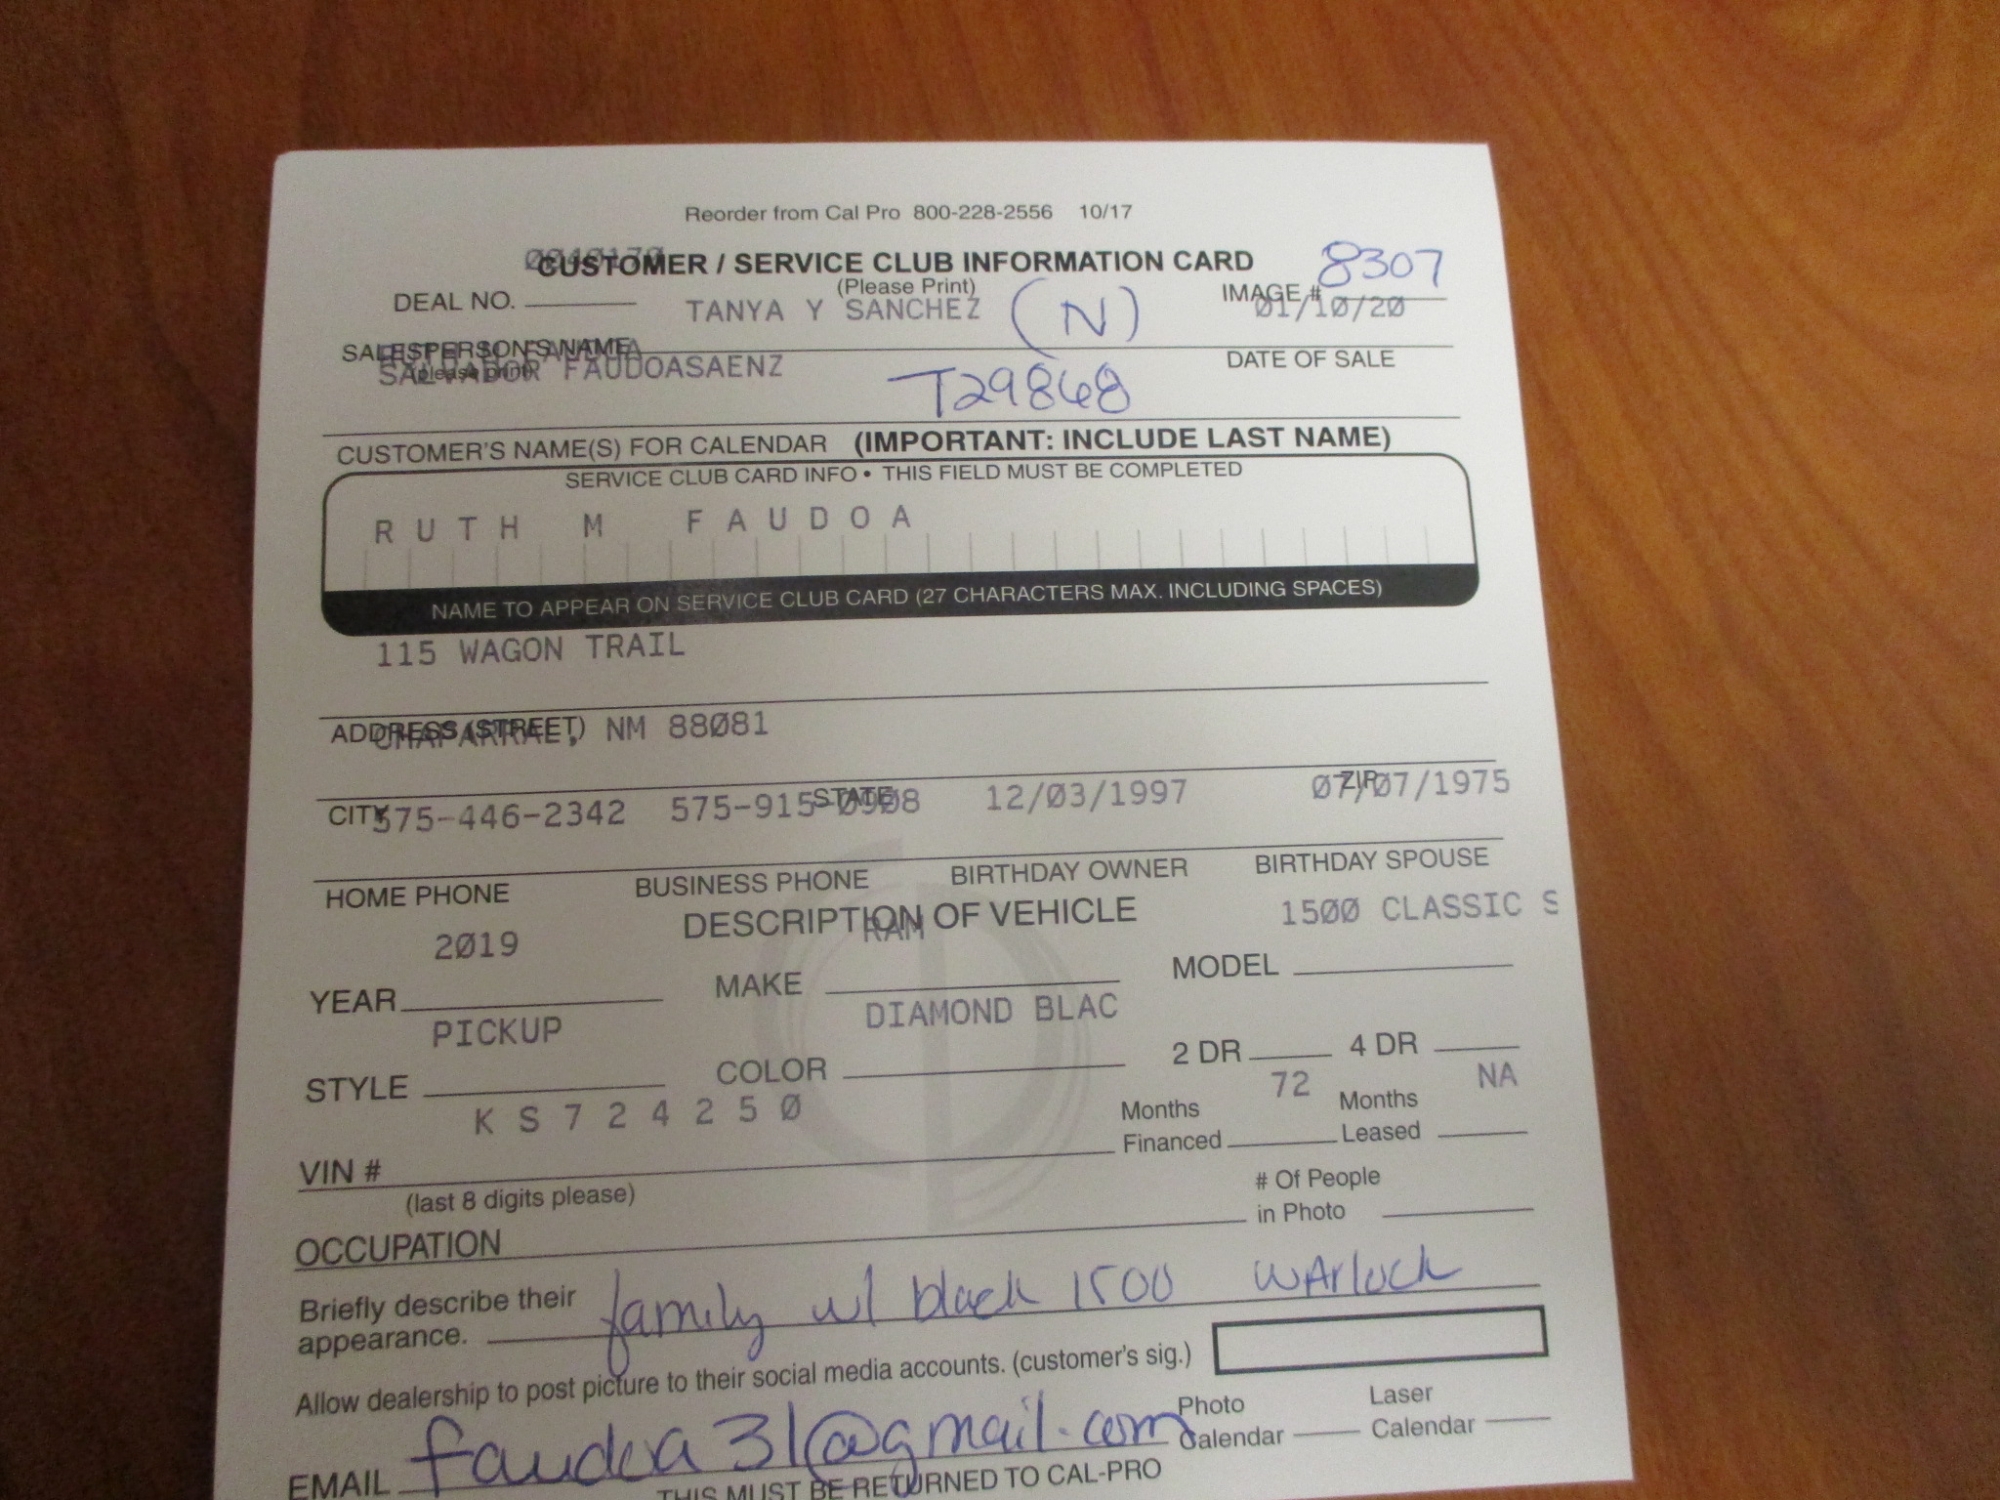 Reorder from Cal Pro 800-228-2556 10/17
CUSTOMER / SERVICE CLUB INFORMATION CARD 8307
(Please Print)
DEAL NO. TANYA Y SANCHEZ (N) IMAGE # 01/10/20
SALESPERSON'S NAME DATE OF SALE
(please print)
SALVADOR FAUDOASAENZ T29868
CUSTOMER'S NAME(S) FOR CALENDAR (IMPORTANT: INCLUDE LAST NAME)
SERVICE CLUB CARD INFO • THIS FIELD MUST BE COMPLETED
RUTH M FAUDOA
NAME TO APPEAR ON SERVICE CLUB CARD (27 CHARACTERS MAX. INCLUDING SPACES)
115 WAGON TRAIL
ADDRESS (STREET)
CHAPARRAL, NM 88081
CITY STATE ZIP
575-446-2342 575-915-0908 12/03/1997 07/07/1975
HOME PHONE BUSINESS PHONE BIRTHDAY OWNER BIRTHDAY SPOUSE
DESCRIPTION OF VEHICLE
2019 RAM 1500 CLASSIC S
YEAR MAKE MODEL
PICKUP DIAMOND BLAC
STYLE COLOR 2 DR 4 DR
KS724250 Months 72 Months NA
Financed Leased
VIN #
(last 8 digits please) # Of People
in Photo
OCCUPATION
Briefly describe their family w/ black 1500 WArlock
appearance.
Allow dealership to post picture to their social media accounts. (customer's sig.)
Photo Laser
Calendar Calendar
EMAIL faudoa31@gmail.com
THIS MUST BE RETURNED TO CAL-PRO